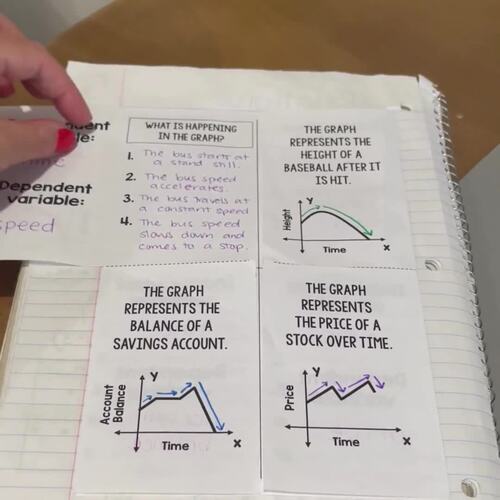 WHAT IS HAPPENING
IN THE GRAPH?
1. The bus starts at
a stand still.
2. The bus speed
accelerates.
3. The bus travels at
a constant speed
4. The bus speed
slows down and
comes to a stop.
Dependent
variable:
speed
THE GRAPH
REPRESENTS THE
HEIGHT OF A
BASEBALL AFTER IT
IS HIT.
Y
Height
Time
X
THE GRAPH
REPRESENTS THE
BALANCE OF A
SAVINGS ACCOUNT.
Y
Account
Balance
Time
X
THE GRAPH
REPRESENTS
THE PRICE OF A
STOCK OVER TIME.
Y
Price
Time
X